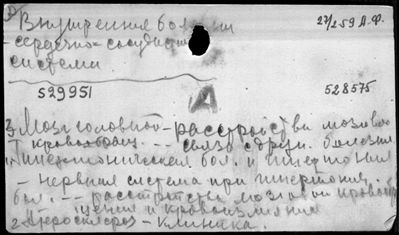 Внутренние болезни
27/259 А.Ф.
сердечно-сосудист
системы
529951
А
528575
Мозг головной - расстройства мозгово
кровообращ. -- связь с друг. болезня
Гипертоническая бол. и гипертония
- нервная система при гипертонич.
бол. -- расстройства мозговой кровообр
щения и кровоизлияния
2 Атеросклероз - клиника.